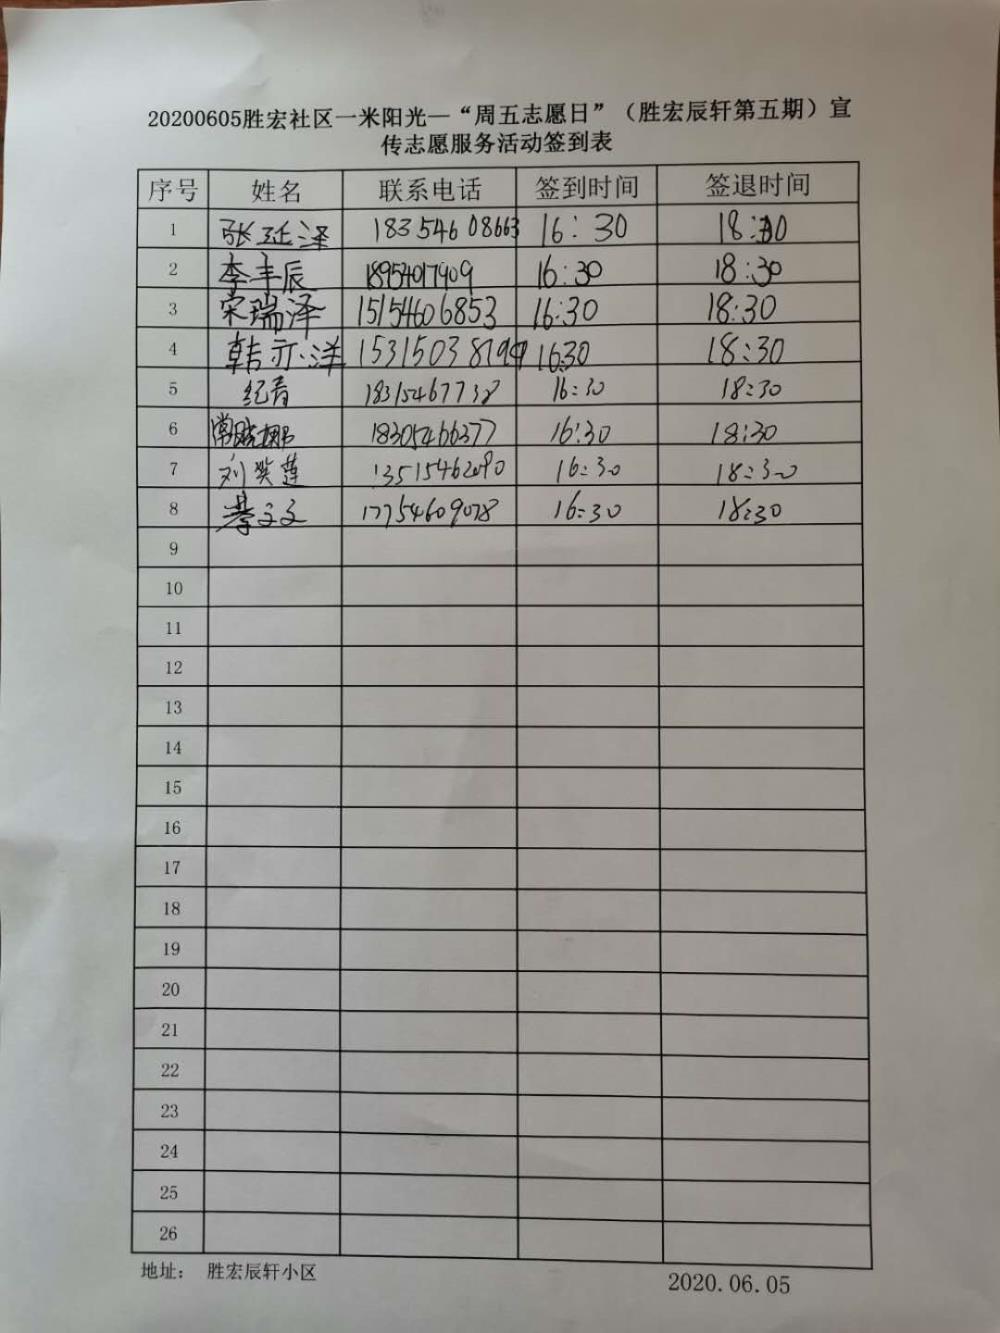 20200605胜宏社区一米阳光—“周五志愿日”（胜宏辰轩第五期）宣
传志愿服务活动签到表
序号 姓名 联系电话 签到时间 签退时间
1 张延泽 18354608663 16:30 18:30
2 李丰辰 18954017909 16:30 18:30
3 宋瑞泽 15154606853 16:30 18:30
4 韩亦洋 16:30 18:30
5 纪青 18315467738 16:30 18:30
6 常晓娜 18305466377 16:30 18:30
7 刘笑莲 13515462090 16:30 18:30
8 綦文文 17754609078 16:30 18:30
9
10
11
12
13
14
15
16
17
18
19
20
21
22
23
24
25
26
地址： 胜宏辰轩小区
2020.06.05